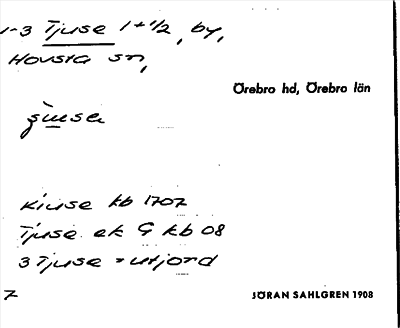 1-3 Tjuse 1+1/2, by,
Hovsta sn,
Örebro hd, Örebro län
Kiuse kb 1707
Tjuse ek G kb 08
3 Tjuse = utjord
7
JÖRAN SAHLGREN 1908